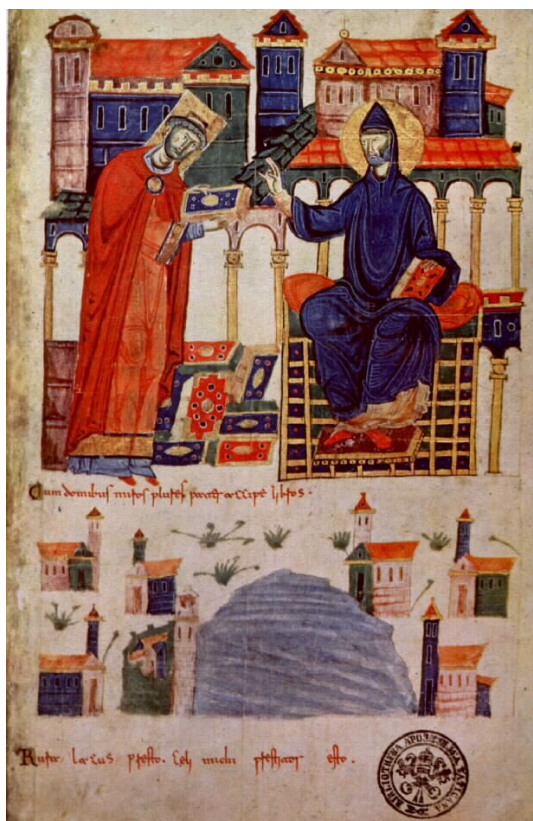 Cum domibus miros plures pater accipe libros.
Rura lacus p̄sto. celi michi p̄stitor esto.
BIBLIOTHECA APOSTOLICA VATICANA